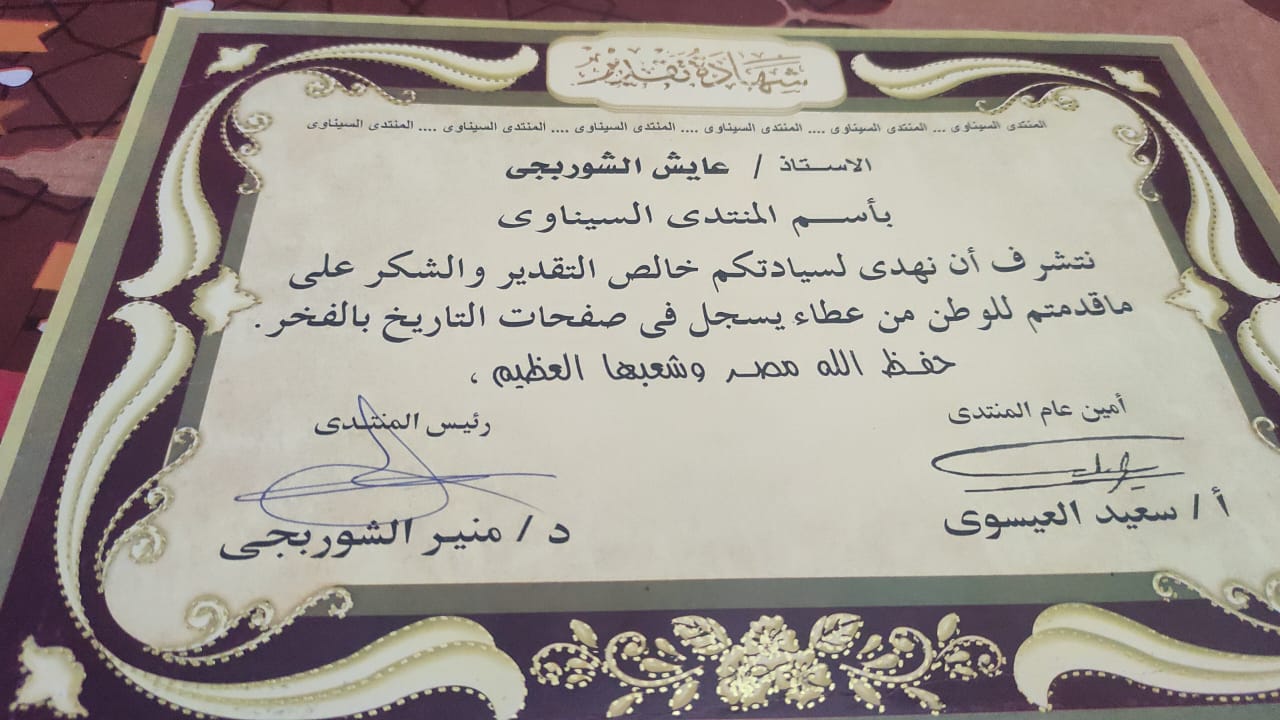 شهادة تقدير
المنتدى السيناوى ... المنتدى السيناوى .... المنتدى السيناوى .... المنتدى السيناوى .... المنتدى السيناوى .... المنتدى السيناوى
الاستاذ / عايش الشوربجى
بأسم المنتدى السيناوى
نتشرف أن نهدى لسيادتكم خالص التقدير والشكر على
ماقدمتم للوطن من عطاء يسجل فى صفحات التاريخ بالفخر.
حفظ الله مصر وشعبها العظيم ،
أمين عام المنتدى
رئيس المنتدى
أ / سعيد العيسوى
د / منير الشوربجى